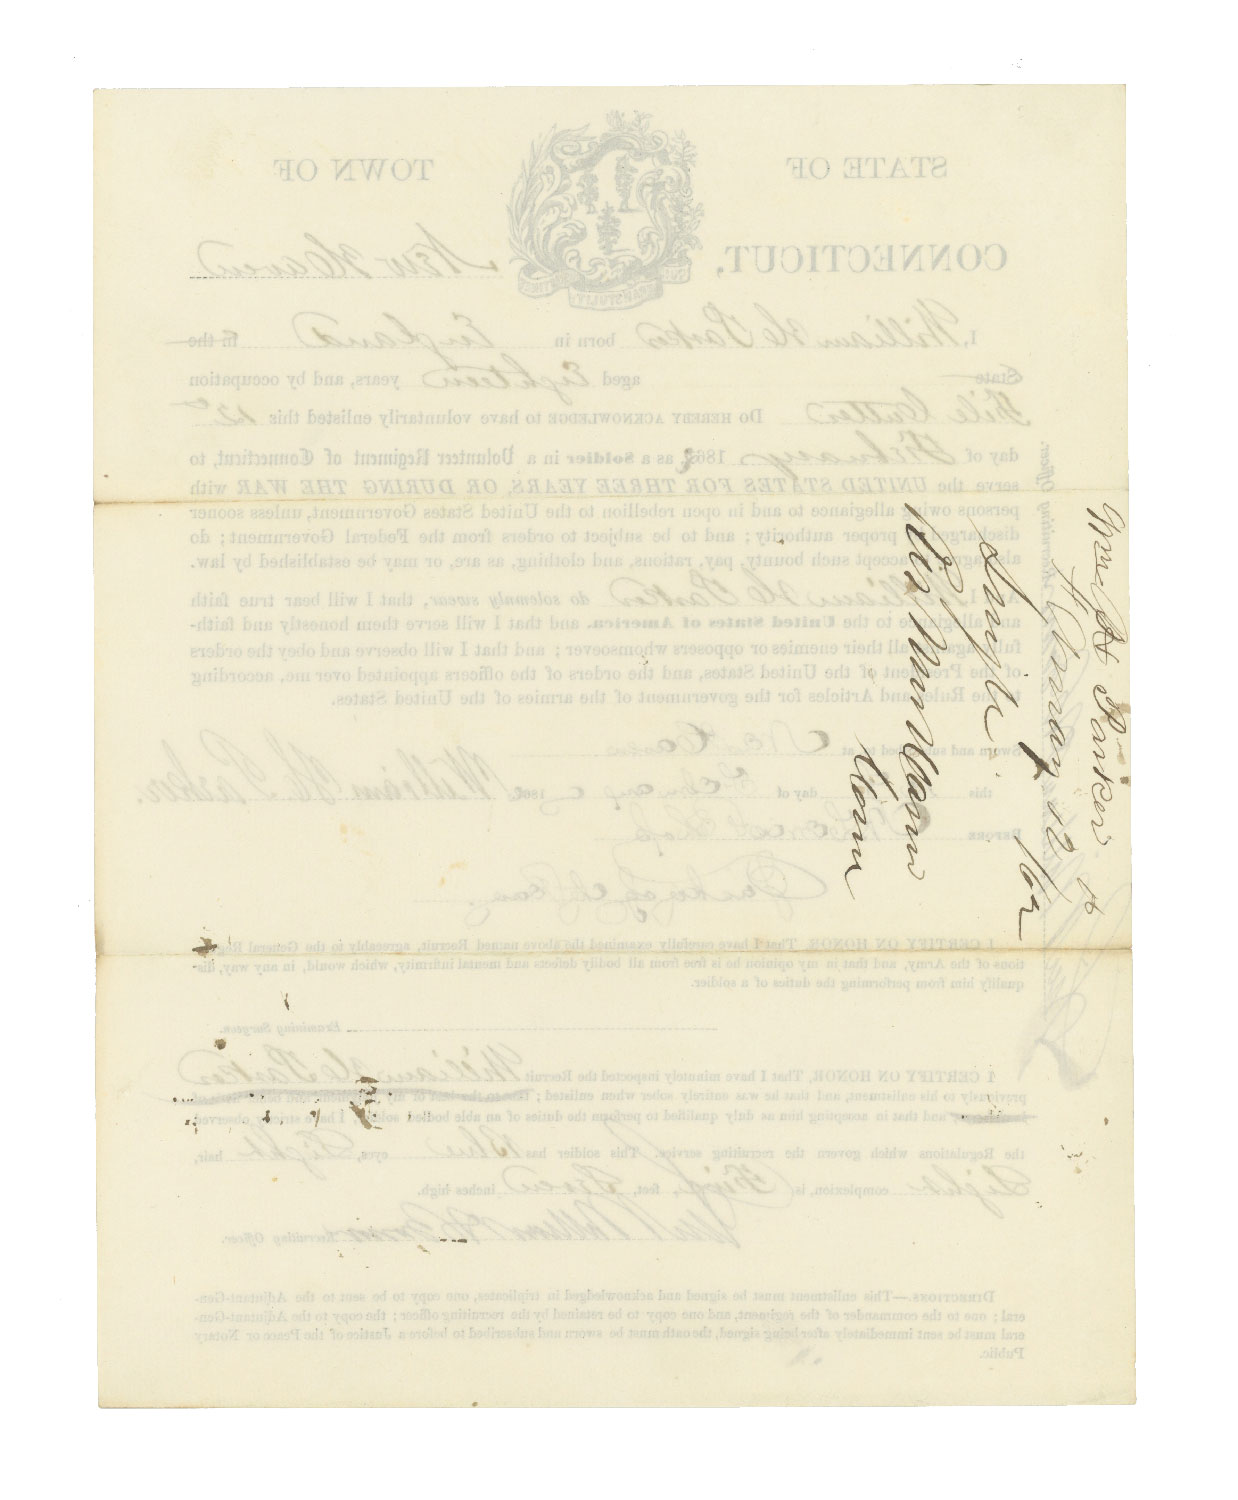 Wm H Parker
February 12 /62
Single
Res New Haven
Conn
STATE OF
TOWN OF
CONNECTICUT,
New Haven
I, William H Parker born in England in the
State aged Eighteen years, and by occupation
File Cutter DO HEREBY ACKNOWLEDGE to have voluntarily enlisted this 12
day of February 186 as a Soldier in a Volunteer Regiment of Connecticut, to
serve the UNITED STATES FOR THREE YEARS, OR DURING THE WAR with
persons owing allegiance to and in open rebellion to the United States Government, unless sooner
discharged by proper authority; and to be subject to orders from the Federal Government; do
also agree to accept such bounty, pay, rations, and clothing, as are, or may be established by law.
And I William H Parker do solemnly swear, that I will bear true faith
and allegiance to the United States of America, and that I will serve them honestly and faith-
fully against all their enemies or opposers whomsoever; and that I will observe and obey the orders
of the President of the United States, and the orders of the officers appointed over me, according
to the Rules and Articles for the government of the armies of the United States.
Sworn and subscribed to at New Haven
this day of February 186 William H. Parker.
BEFORE
I CERTIFY ON HONOR, That I have carefully examined the above named Recruit, agreeably to the General Regula-
tions of the Army, and that in my opinion he is free from all bodily defects and mental infirmity, which would, in any way, dis-
qualify him from performing the duties of a soldier.
Examining Surgeon.
I CERTIFY ON HONOR, That I have minutely inspected the Recruit William H Parker
previously to his enlistment, and that he was entirely sober when enlisted; that to the best of my
and that in accepting him as duly qualified to perform the duties of an able bodied soldier I have strictly observed
the Regulations which govern the recruiting service. This soldier has Blue eyes, Light hair,
Light complexion, is Five feet, Seven inches high.
Recruiting Officer.
DIRECTIONS.—This enlistment must be signed and acknowledged in triplicates, one copy to be sent to the Adjutant-Gen-
eral; one to the commander of the regiment, and one copy to be retained by the recruiting officer; the copy to the Adjutant-Gen-
eral must be sent immediately after being signed, the oath must be sworn and subscribed to before a Justice of the Peace or Notary
Public.